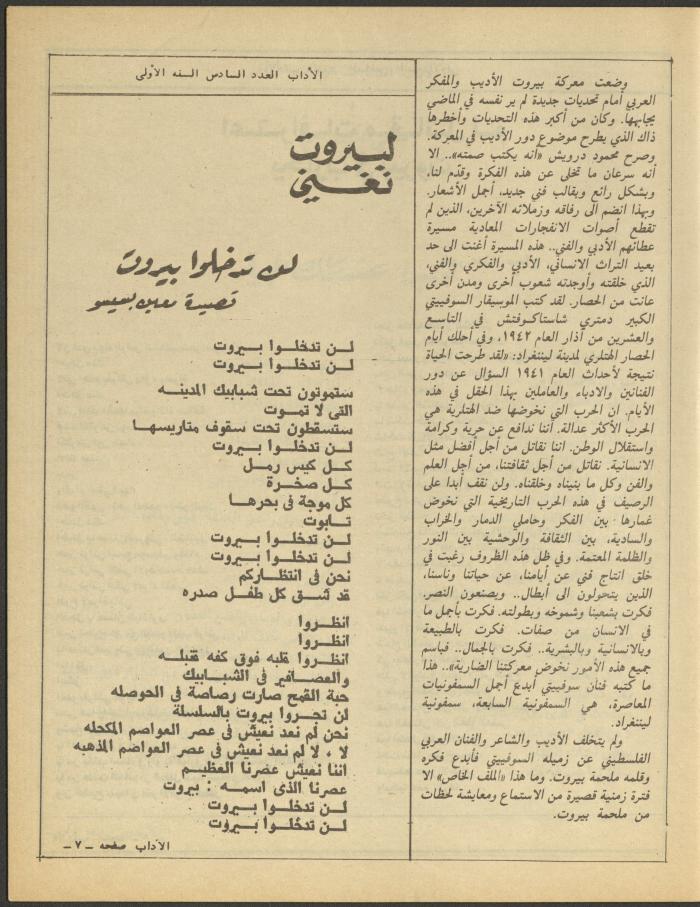 وضعت معركة بيروت الأديب والمفكر
العربي أمام تحديات جديدة لم ير نفسه في الماضي
يجابهها. وكان من أكبر هذه التحديات وأخطرها
ذاك الذي يطرح موضوع دور الأديب في المعركة.
وصرح محمود درويش «أنه يكتب صمته».. الا
أنه سرعان ما تخلى عن هذه الفكرة وقدّم لنا،
وبشكل رائع وبقالب فني جديد، أجمل الأشعار.
وبهذا انضم الى رفاقه وزملائه الآخرين، الذين لم
تقطع أصوات الانفجارات المعادية مسيرة
عطائهم الأدبي والفني.. هذه المسيرة أغنت الى حد
بعيد التراث الانساني، الأدبي والفكري والفني،
الذي خلقته وأوجدته شعوب أخرى ومدن أخرى
عانت من الحصار. لقد كتب الموسيقار السوفييتي
الكبير دمتري شاستاكوفتش في التاسع
والعشرين من آذار العام ١٩٤٢، وفي أحلك أيام
الحصار الهتلري لمدينة ليننغراد: «لقد طرحت الحياة
نتيجة لأحداث العام ١٩٤١ السؤال عن دور
الفنانين والادباء والعاملين بهذا الحقل في هذه
الأيام. ان الحرب التي نخوضها ضد الهتلرية هي
الحرب الأكثر عدالة. أننا ندافع عن حرية وكرامة
واستقلال الوطن. اننا نقاتل من أجل أفضل مثل
الانسانية. نقاتل من أجل ثقافتنا، من أجل العلم
والفن وكل ما بنيناه وخلقناه. ولن نقف أبدا على
الرصيف في هذه الحرب التاريخية التي نخوض
غمارها بين الفكر وحاملي الدمار والخراب
والسادية، بين الثقافة والوحشية بين النور
والظلمة المعتمة. وفي ظل هذه الظروف رغبت في
خلق انتاج فني عن أيامنا، عن حياتنا وناسنا،
الذين يتحولون الى أبطال.. ويصنعون النصر.
فكرت بشعبنا وشموخه وبطولته. فكرت بأجمل ما
في الانسان من صفات. فكرت بالطبيعة
وبالانسانية وبالبشرية.. فكرت بالجمال.. فباسم
جميع هذه الأمور نخوض معركتنا الضارية».. هذا
ما كتبه فنان سوفييتي أبدع أجمل السمفونيات
المعاصرة، هي السمفونية السابعة، سمفونية
ليننغراد.
ولم يتخلف الأديب والشاعر والفنان العربي
الفلسطيني عن زميله السوفييتي فأبدع فكره
وقلمه ملحمة بيروت. وما هذا «الملف الخاص» الا
فترة زمنية قصيرة من الاستماع ومعايشة لحظات
من ملحمة بيروت.
الآداب العدد السادس السنه الأولى
لبيروت
نغني
لن تدخلوا بيروت
قصيدة معين بسيسو
لن تدخلوا بيروت
لن تدخلوا بيروت
ستموتون تحت شبابيك المدينه
التى لا تموت
ستسقطون تحت سقوف متاريسها
لن تدخلوا بيروت
كل كيس رمل
كل صخرة
كل موجة فى بحرها
تابوت
لن تدخلوا بيروت
لن تدخلوا بيروت
نحن فى انتظاركم
قد شق كل طفل صدره
انظروا
انظروا
انظروا قلبه فوق كفه قنبله
والعصافير فى الشبابيك
حبة القمح صارت رصاصة فى الحوصله
لن تجروا بيروت بالسلسلة
نحن لم نعد نعيش فى عصر العواصم المكحله
لا ، لا لم نعد نعيش فى عصر العواصم المذهبه
اننا نعيش عصرنا العظيم
عصرنا الذى اسمه : بيروت
لن تدخلوا بيروت
لن تدخلوا بيروت
الآداب صفحه ـ ٧ ـ